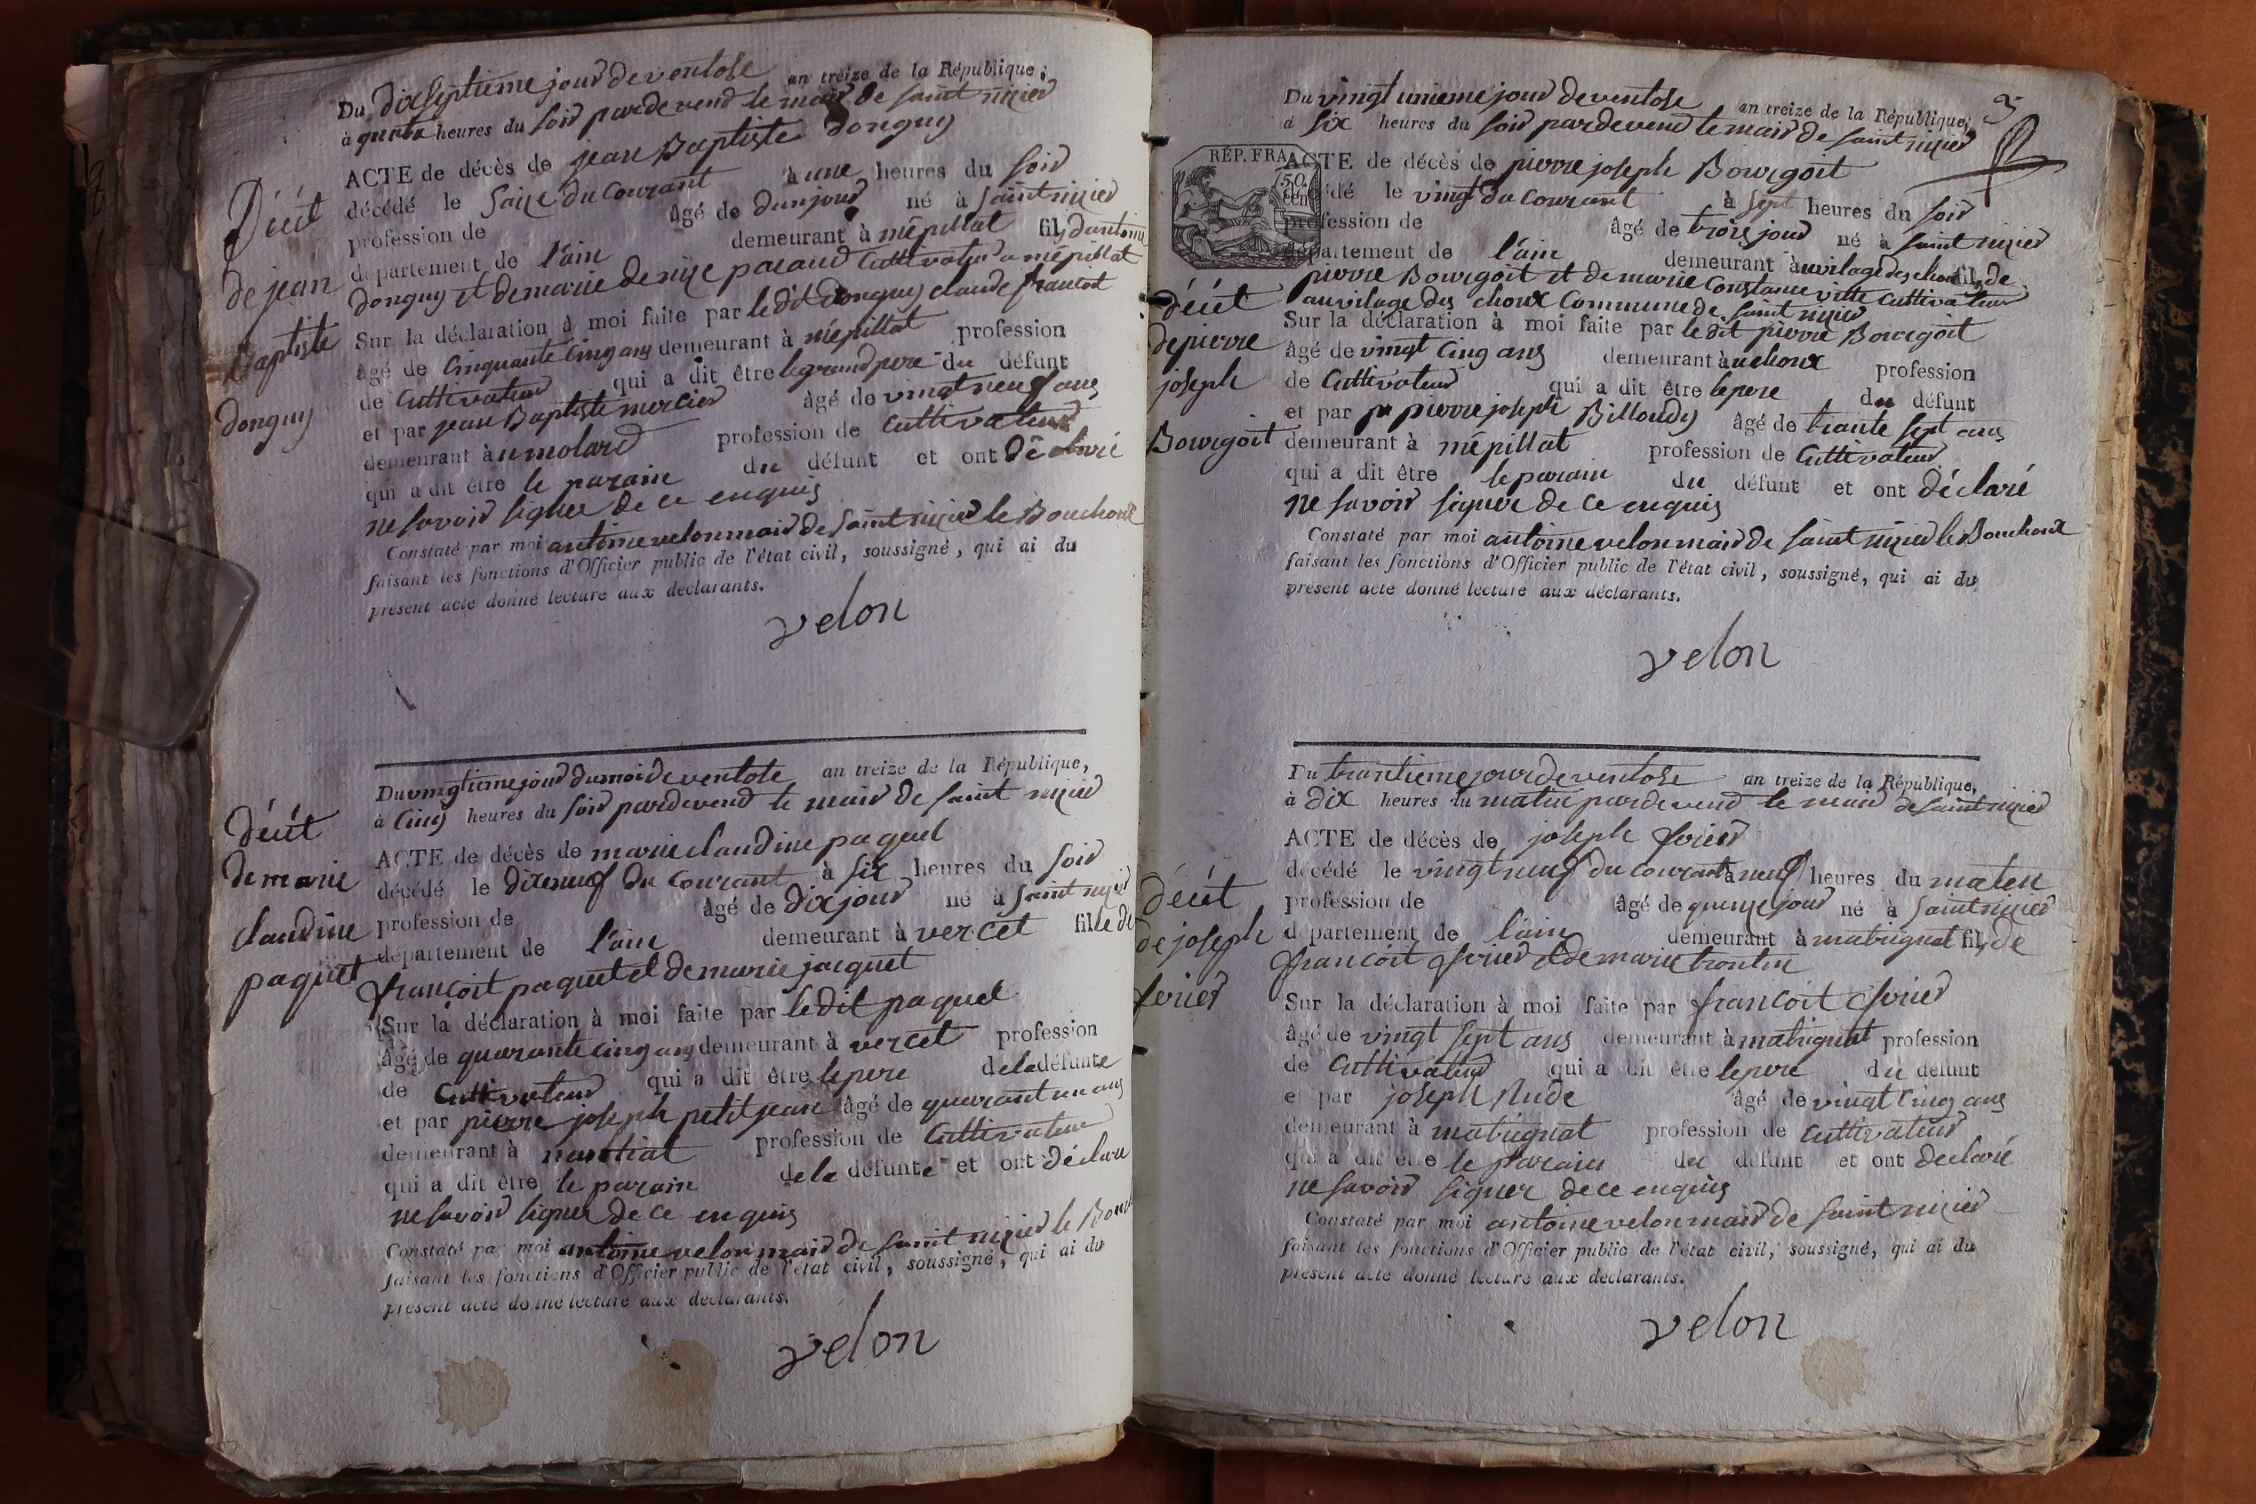 Du dixseptieme jour de ventose an treize de la République;
à quatre heures du soir pardevend le mair de saint nizier
ACTE de décès de jean Baptiste donguy
décédé le saize du courant à une heures du soir
profession de âgé de dun jour né à saint nizier
département de l'ain demeurant à mépillat fils dantoine
donguy et de marie denize paraud cultivateur a mépillat
Sur la déclaration à moi faite par le dit donguy claude francoit
âgé de cinquante cinq ans demeurant à mépillat profession
de cultivateur qui a dit être legrand pere du défunt
et par jean Baptiste mercier âgé de vingt neuf ans
demeurant à umolard profession de cultivateur
qui a dit être le parain du défunt et ont déclaré
ne savoir signer de ce enquis
Constaté par moi antoine velon mair de saint nizier le Bouchoux
faisant les fonctions d'Officier public de l'état civil, soussigné, qui ai du
présent acte donné lecture aux déclarants.
velon
Décit
de jean
Baptiste
donguy
Du vingtieme jour du moi de ventose an treize de la République,
à cinq heures du soir pardevend le mair de saint nizier
ACTE de décès de marie claudine paquet
décédé le dixeneuf du courant à six heures du soir
profession de âgé de dix jour né à saint nizier
département de l'ain demeurant à vercet fille de
françoit paquet et de marie jacquet
Sur la déclaration à moi faite par le dit paquet
âgé de quarante cinq ans demeurant à vercet profession
de cultivateur qui a dit être le pere de la défunte
et par pierre joseph petit jean âgé de quarant un ans
demeurant à profession de cultivateur
qui a dit être le parain de la défunte et ont déclaré
ne savoir signer de ce enquis
Constaté par moi antoine velon mair de saint nizier le
faisant les fonctions d'Officier public de l'état civil, soussigné, qui ai du
présent acte donné lecture aux déclarants.
velon
décit
de marie
claudine
paquet
3
Du vingt unieme jour de ventose an treize de la République;
à six heures du soir pardevend le mair de saint nizier
RÉP. FRA
50
cen
ACTE de décès de pierre joseph Bourgoit
décédé le vingt du courant à sept heures du soir
profession de âgé de trois jour né à saint nizier
département de l'ain demeurant au vilage des choux fils de
pierre Bourgoit et de marie constance vitte cultivateur
au vilage des choux commune de saint nizier
Sur la déclaration à moi faite par le dit pierre Bourgoit
âgé de vingt cinq ans demeurant à uchoux profession
de cultivateur qui a dit être le pere du défunt
et par pierre joseph Billoudy âgé de trante sept ans
demeurant à mépillat profession de cultivateur
qui a dit être le parain du défunt et ont déclaré
ne savoir signer de ce enquis
Constaté par moi antoine velon mair de saint nizier le Bouchoux
faisant les fonctions d'Officier public de l'état civil, soussigné, qui ai du
présent acte donné lecture aux déclarants.
velon
décit
de pierre
joseph
Bourgoit
Du trantieme jour de ventose an treize de la République,
à dix heures du matin pardevend le mair de saint nizier
ACTE de décès de joseph forier
décédé le vingt neuf du courant à neuf heures du maten
profession de âgé de quinze jour né à saint nizier
département de l'ain demeurant à matrignat fils de
francoit forier et de marie trontin
Sur la déclaration à moi faite par francoit forier
âgé de vingt sept ans demeurant à matrignat profession
de cultivateur qui a dit être le pere du défunt
et par joseph Nude âgé de vingt cinq ans
demeurant à matrignat profession de cultivateur
qui a dit être le parain du défunt et ont declaré
ne savoir signer de ce enquis
Constaté par moi antoine velon mair de saint nizier
faisant les fonctions d'Officier public de l'état civil, soussigné, qui ai du
présent acte donné lecture aux déclarants.
velon
décit
de joseph
forier